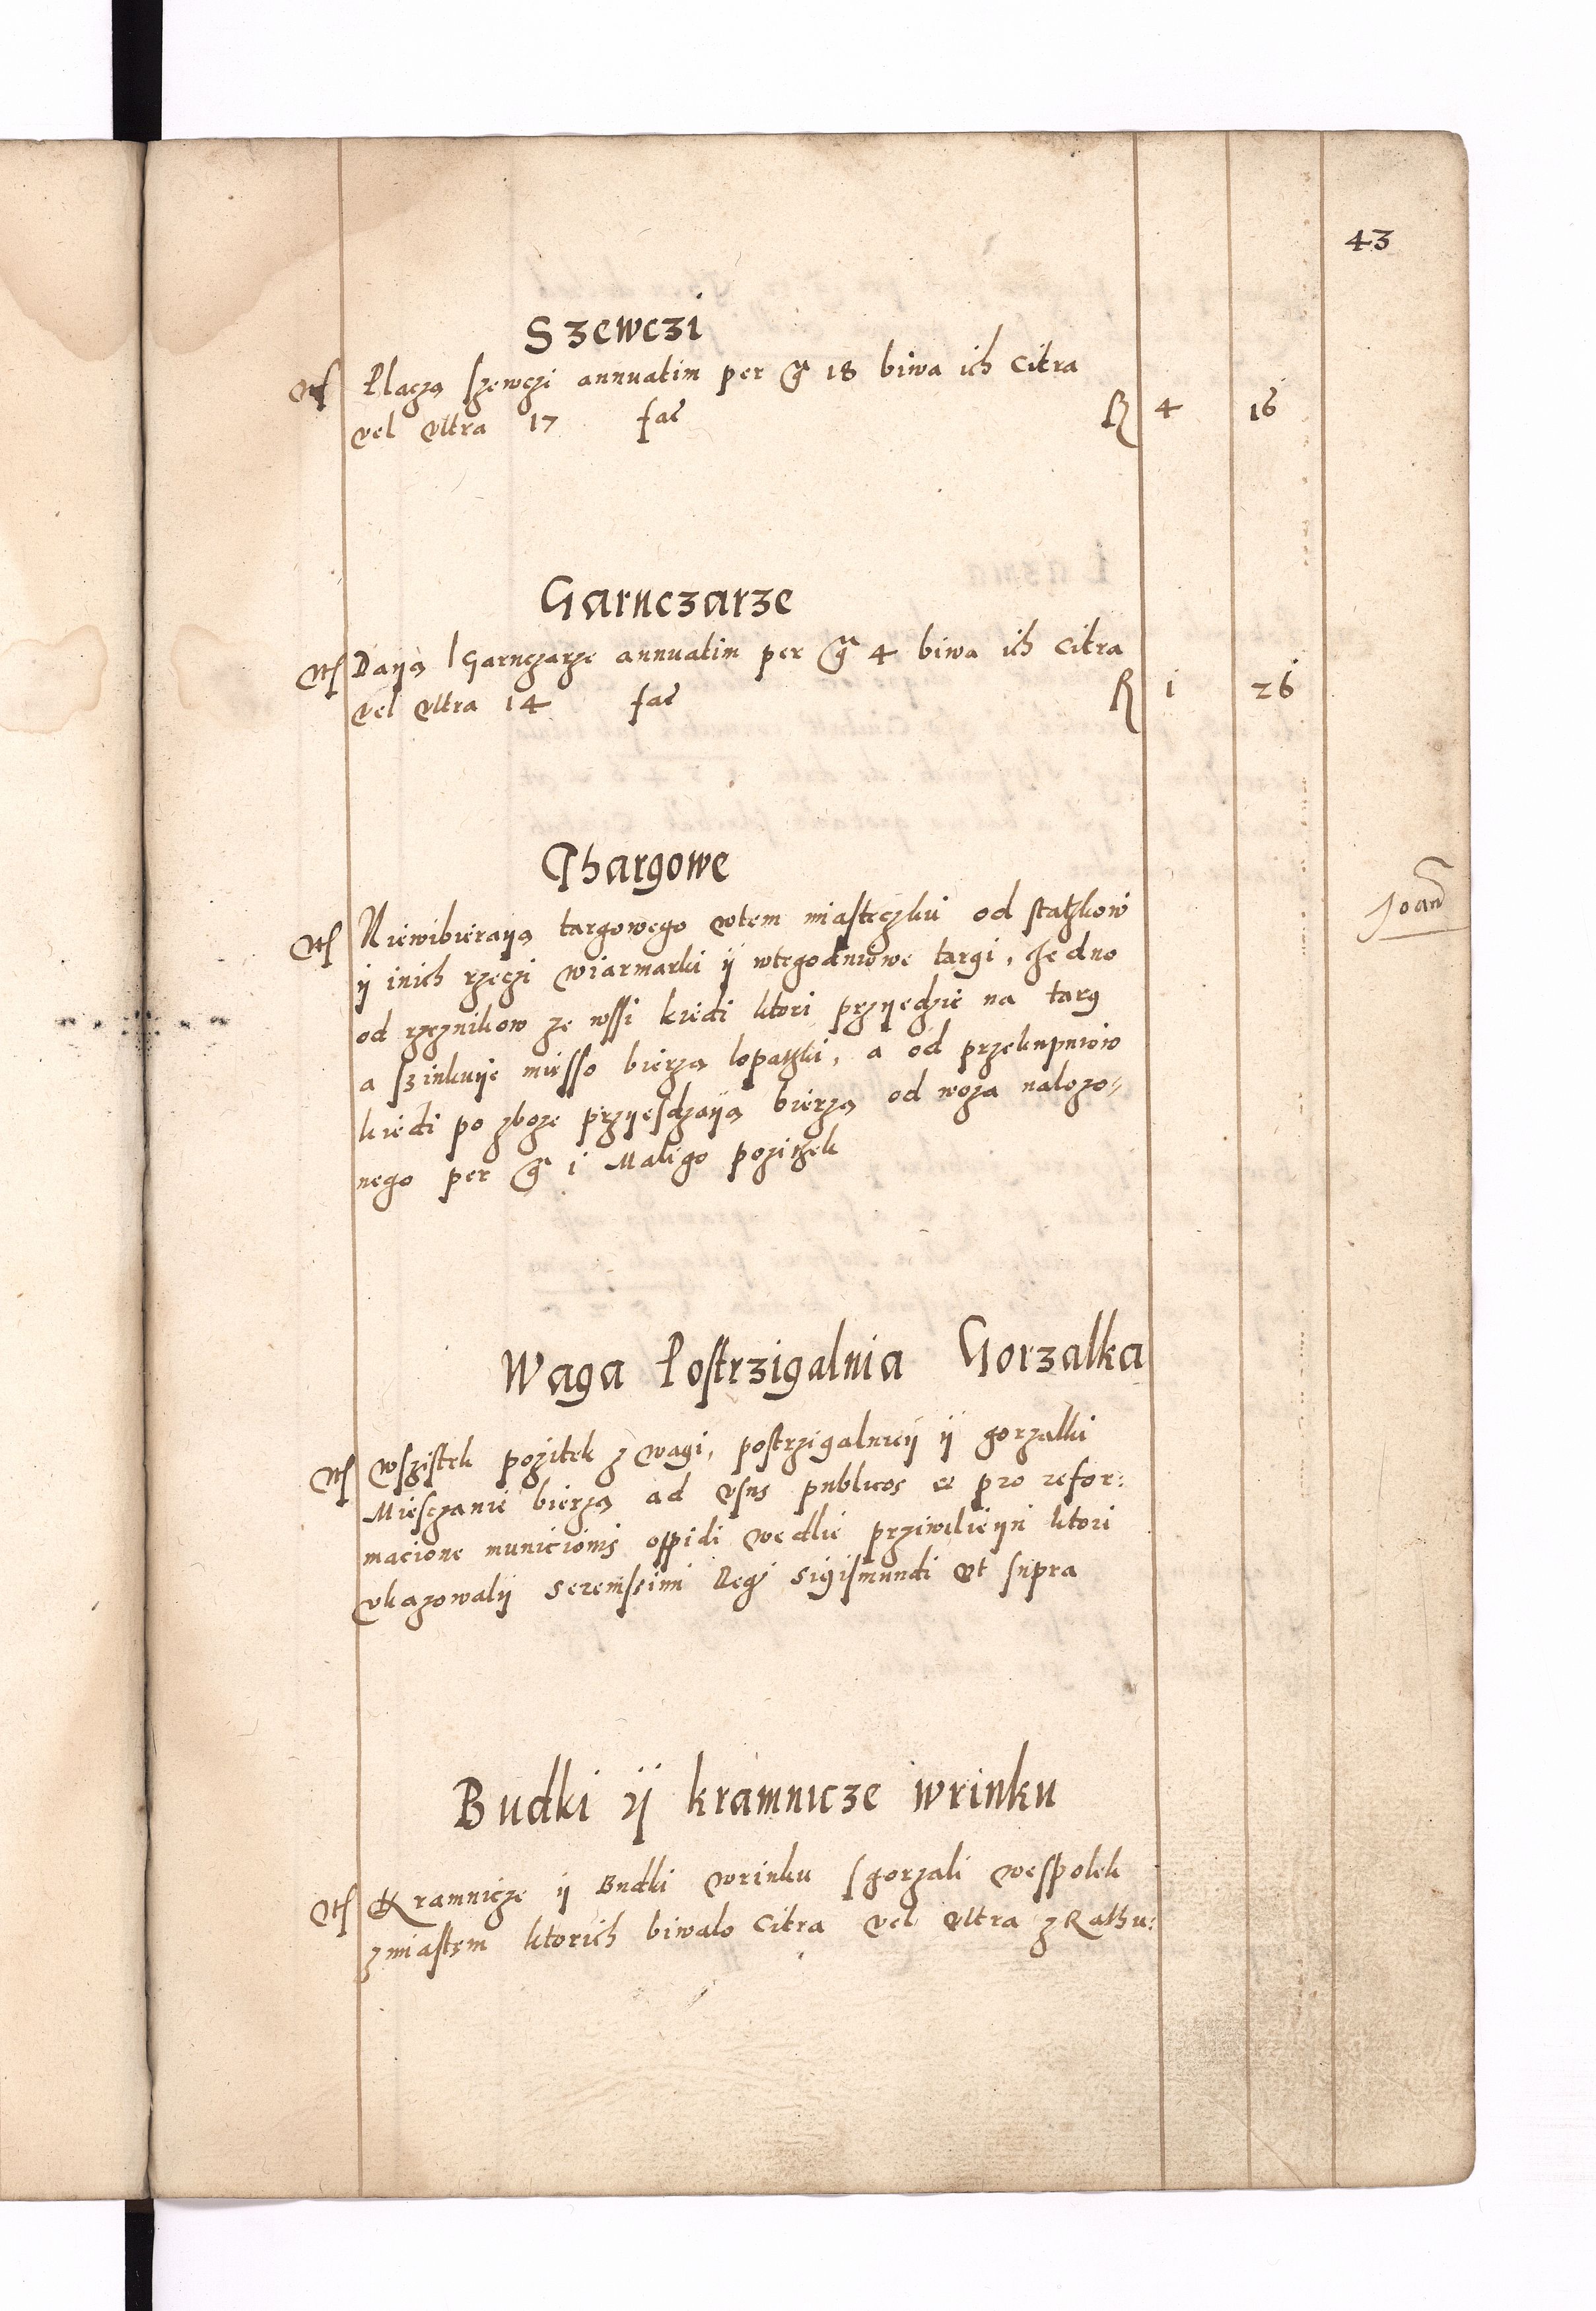 43
Szewczi
Placzą szewczi annuatim per gr 18 biwa ich citra
vel vltra 17 fac R 4 16
Garnczarze
Dayą Garnczarze annuatim per gr 4 biwa ich citra
vel vltra 14 fac R 1 26
Thargowe
Joan
Niewibierayą targowego wtem miasteczku od statkow
ÿ inich rzeczi wiarmarki ÿ wtegodniowe targi, Jedno
od rzeznikow ze wssi kiedi ktori przyiedzie na targ
a szinkuÿe miesso bierzą lopatki, a od przekupniow
kiedi po zboze przyesdzaÿą bierzą od woza nalozo-
nego per gr i Maligo pozitek
Waga Postrzigalnia Gorzalka
wszistek pozitek z wagi, postrzigalnieÿ ÿ gorzalki
Miesczanie bierzą ad vsus publicos et pro refor:
macione municionis oppidi wedlie prziwilieÿu ktori
vkazowalÿ serenissimi Regis Sigismundi vt supra
Budki ÿ kramnicze wrinku
Kramnicze ÿ Budki wrinku sgorzali wespolek
zmiastem ktorich biwalo citra vel vltra z Rathu: